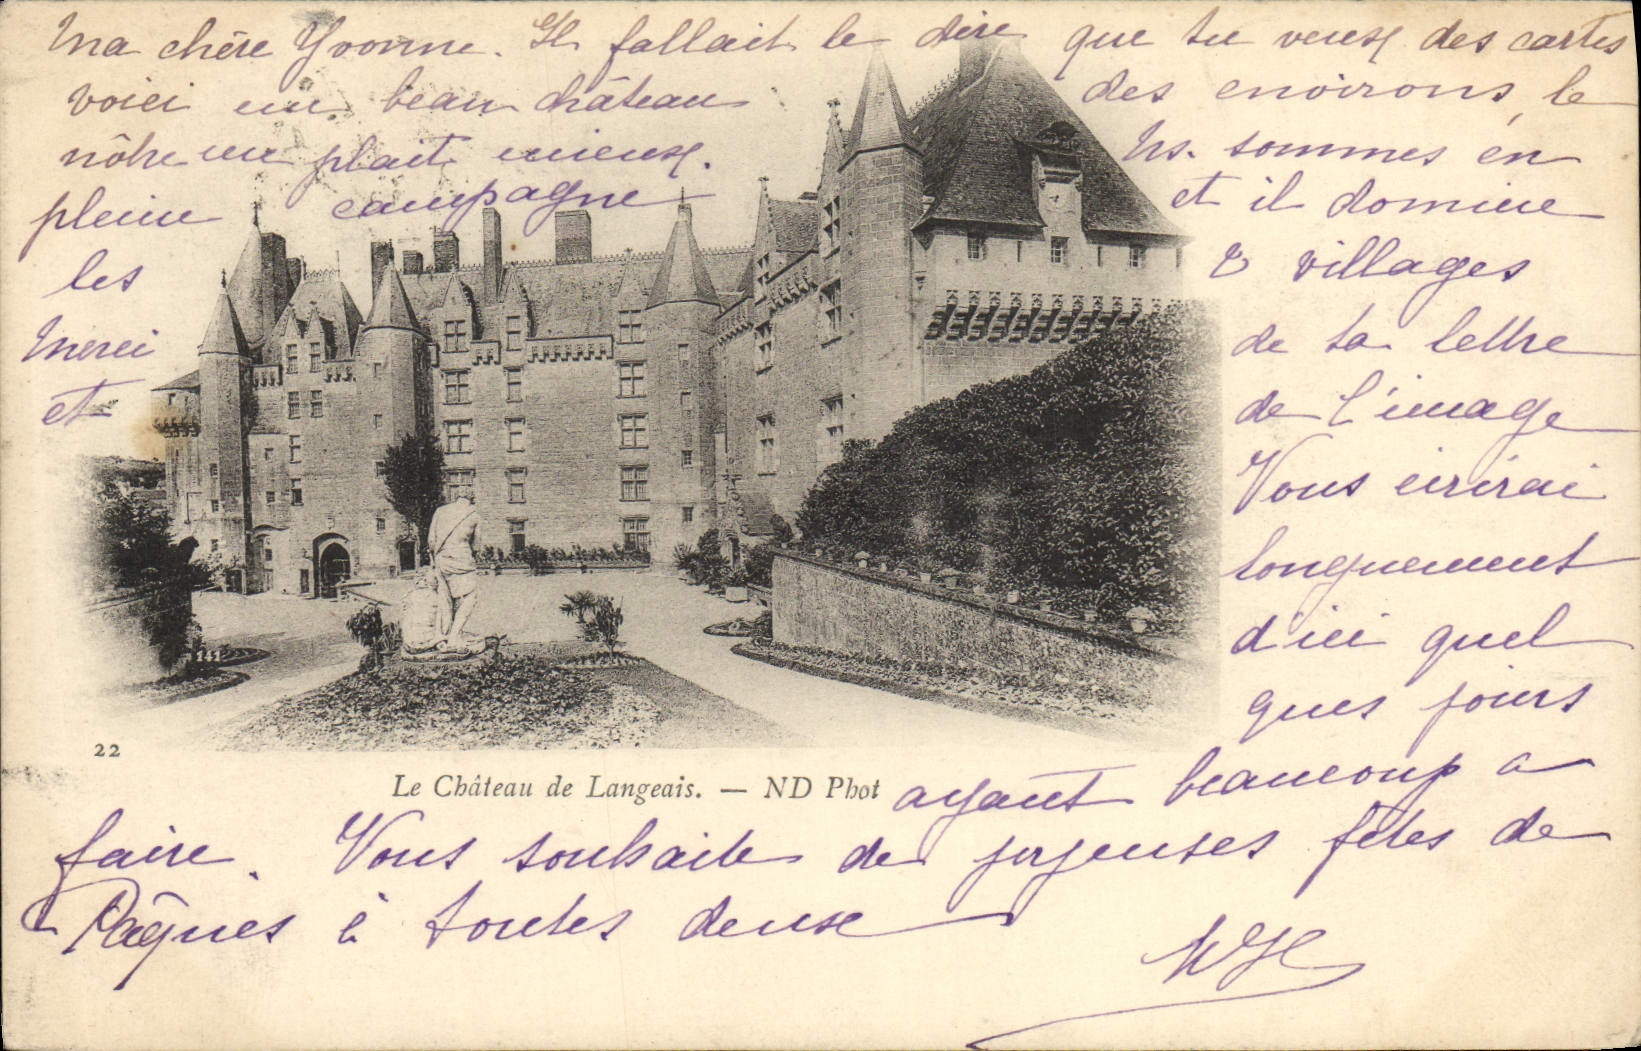 Ma chère Yvonne. Il fallait le dire que tu veux des cartes
voici un beau château des environs, le
nôtre me plait mieux. Ns. sommes en
pleine campagne et il domine
les 2 villages
Merci de ta lettre
et de l'image
Vous écrirai
longuement
d'ici quel
ques jours
22
Le Château de Langeais. — ND Phot
ayant beaucoup a
faire. Vous souhaite de joyeuses fêtes de
Pâques à toutes deux